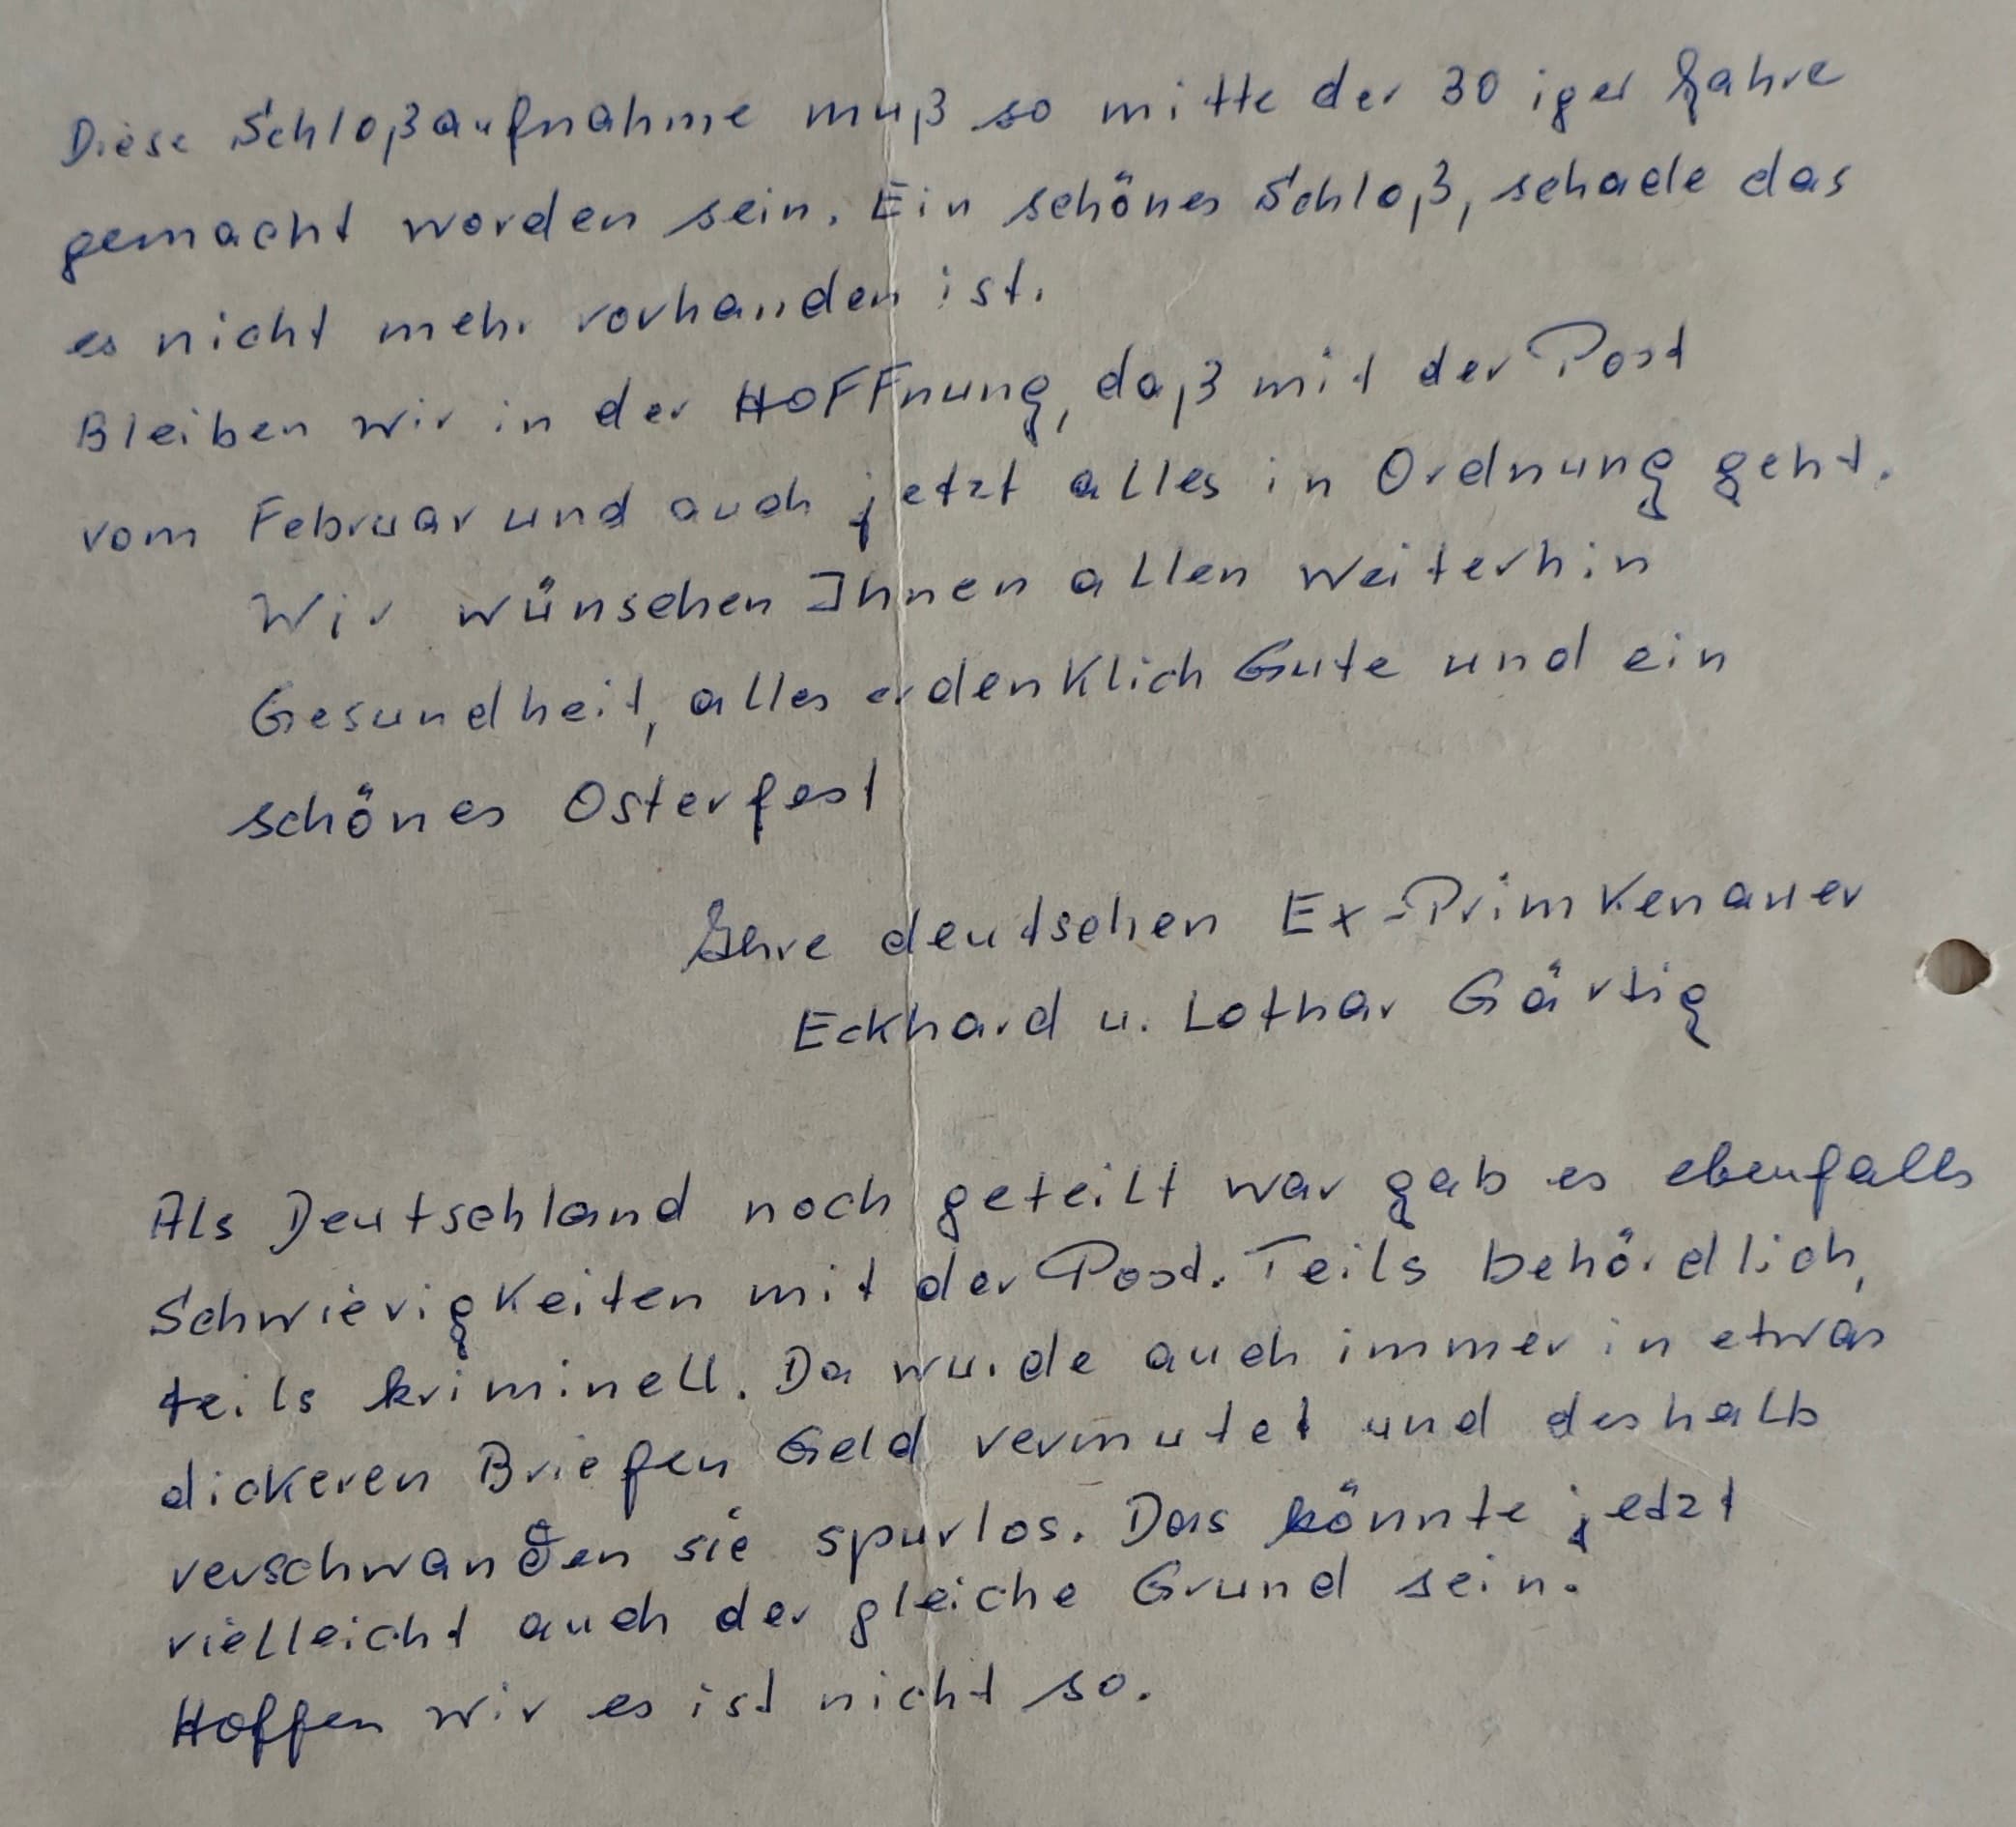 Diese Schloßaufnahme muß so mitte der 30 iger Jahre
gemacht worden sein. Ein schönes Schloß, schade das
es nicht mehr vorhanden ist.
Bleiben wir in der Hoffnung, daß mit der Post
vom Februar und auch jetzt alles in Ordnung geht.
Wir wünschen Ihnen allen weiterhin
Gesundheit, alles erdenklich Gute und ein
schönes Osterfest
Ihre deutschen Ex-Primkenauer
Eckhard u. Lothar Gärtig
Als Deutschland noch geteilt war gab es ebenfalls
Schwierigkeiten mit der Post. Teils behördlich,
teils kriminell. Da wurde auch immer in etwas
dickeren Briefen Geld vermutet und deshalb
verschwanden sie spurlos. Das könnte jetzt
vielleicht auch der gleiche Grund sein.
Hoffen wir es ist nicht so.